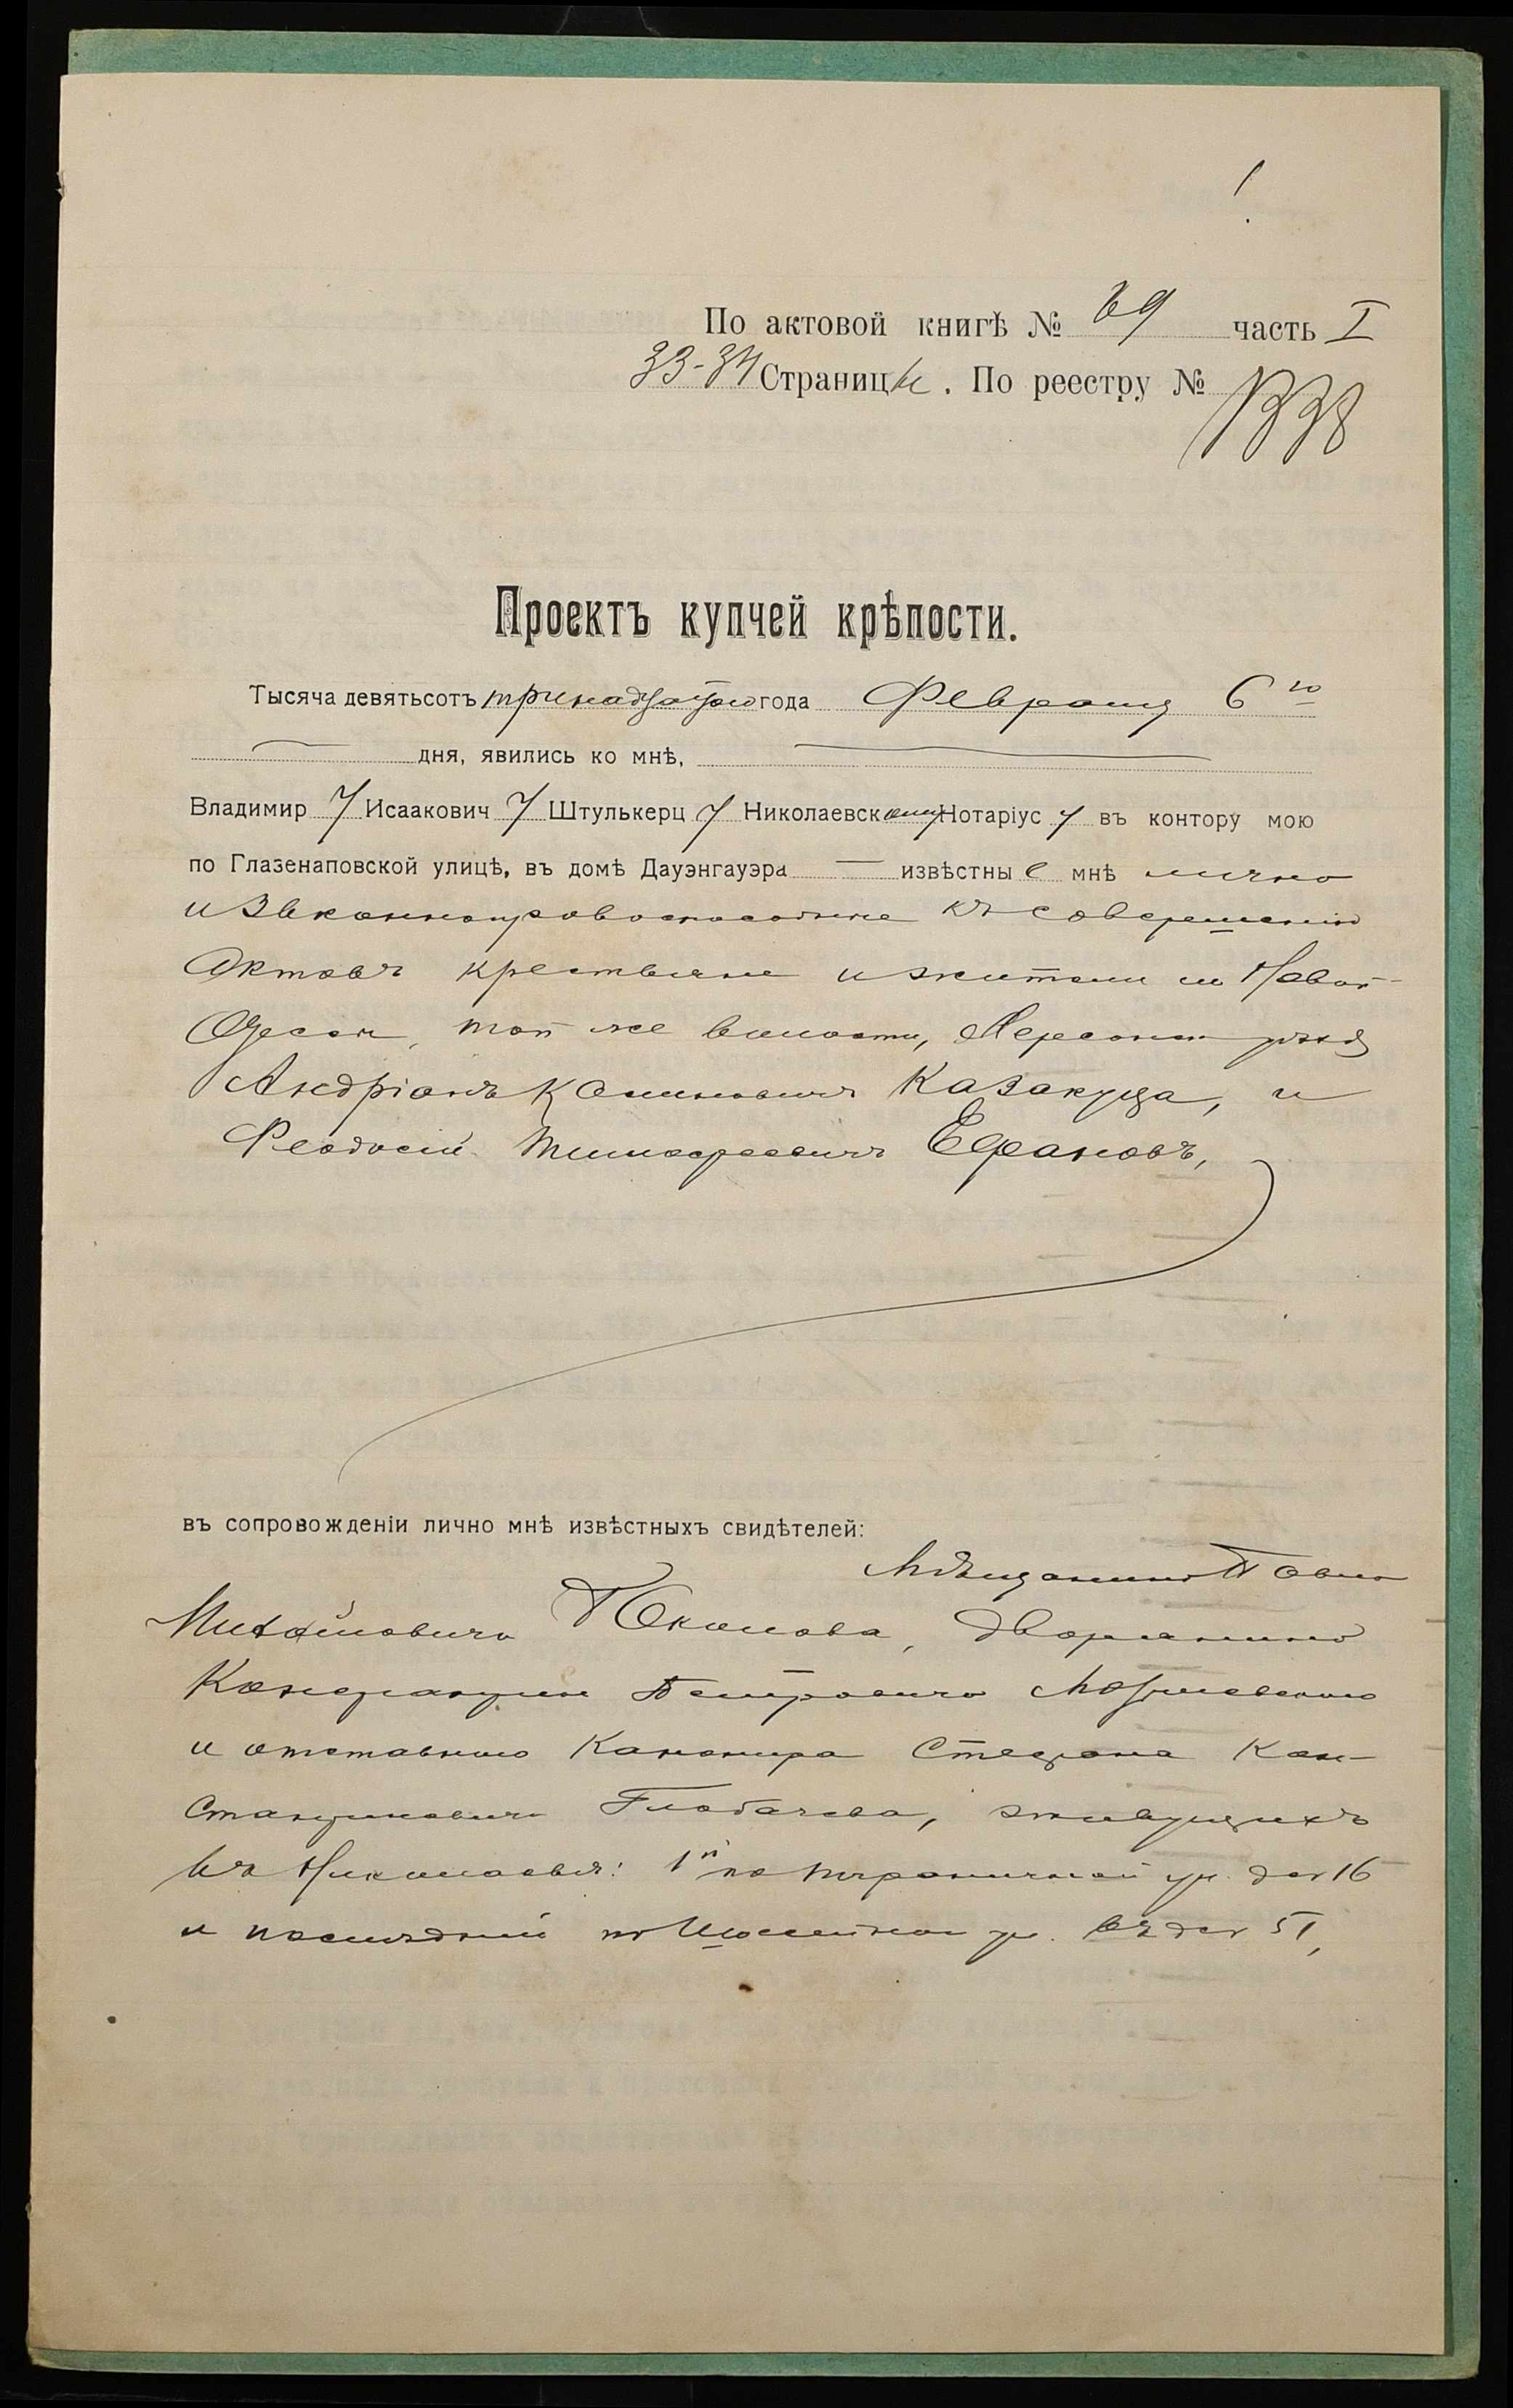 По актовой книгѣ № 69 часть I
33-34 Страницы. По реестру № 1338
Проектъ купчей крѣпости.
Тысяча девятьсотъ тринадцатого года Февраля 6го
дня, явились ко мнѣ,
Владимир у Исаакович у Штулькерц у Николаевскому Нотаріус у въ контору мою
по Глазенаповской улицѣ, въ домѣ Дауэнгауэра — извѣстны е мнѣ лично
и законноправоспособные къ совершенію
актовъ крестьяне и жители м Новой-
Одессы, той же волости, Херсонск уѣзда
Андріанъ Казакуца, и
Феодосій Тимофеевичъ Ефановъ,
въ сопровожденіи лично мнѣ извѣстныхъ свидѣтелей:
Мѣщанина Павла
Михайловича дворянина
Петровича
и отставного Канонира Стефана Кон-
стантиновича Глобачева, живущихъ
въ Николаевѣ: 1й по Пограничной ул. д 16
и послѣдній по ул. въ д 51,